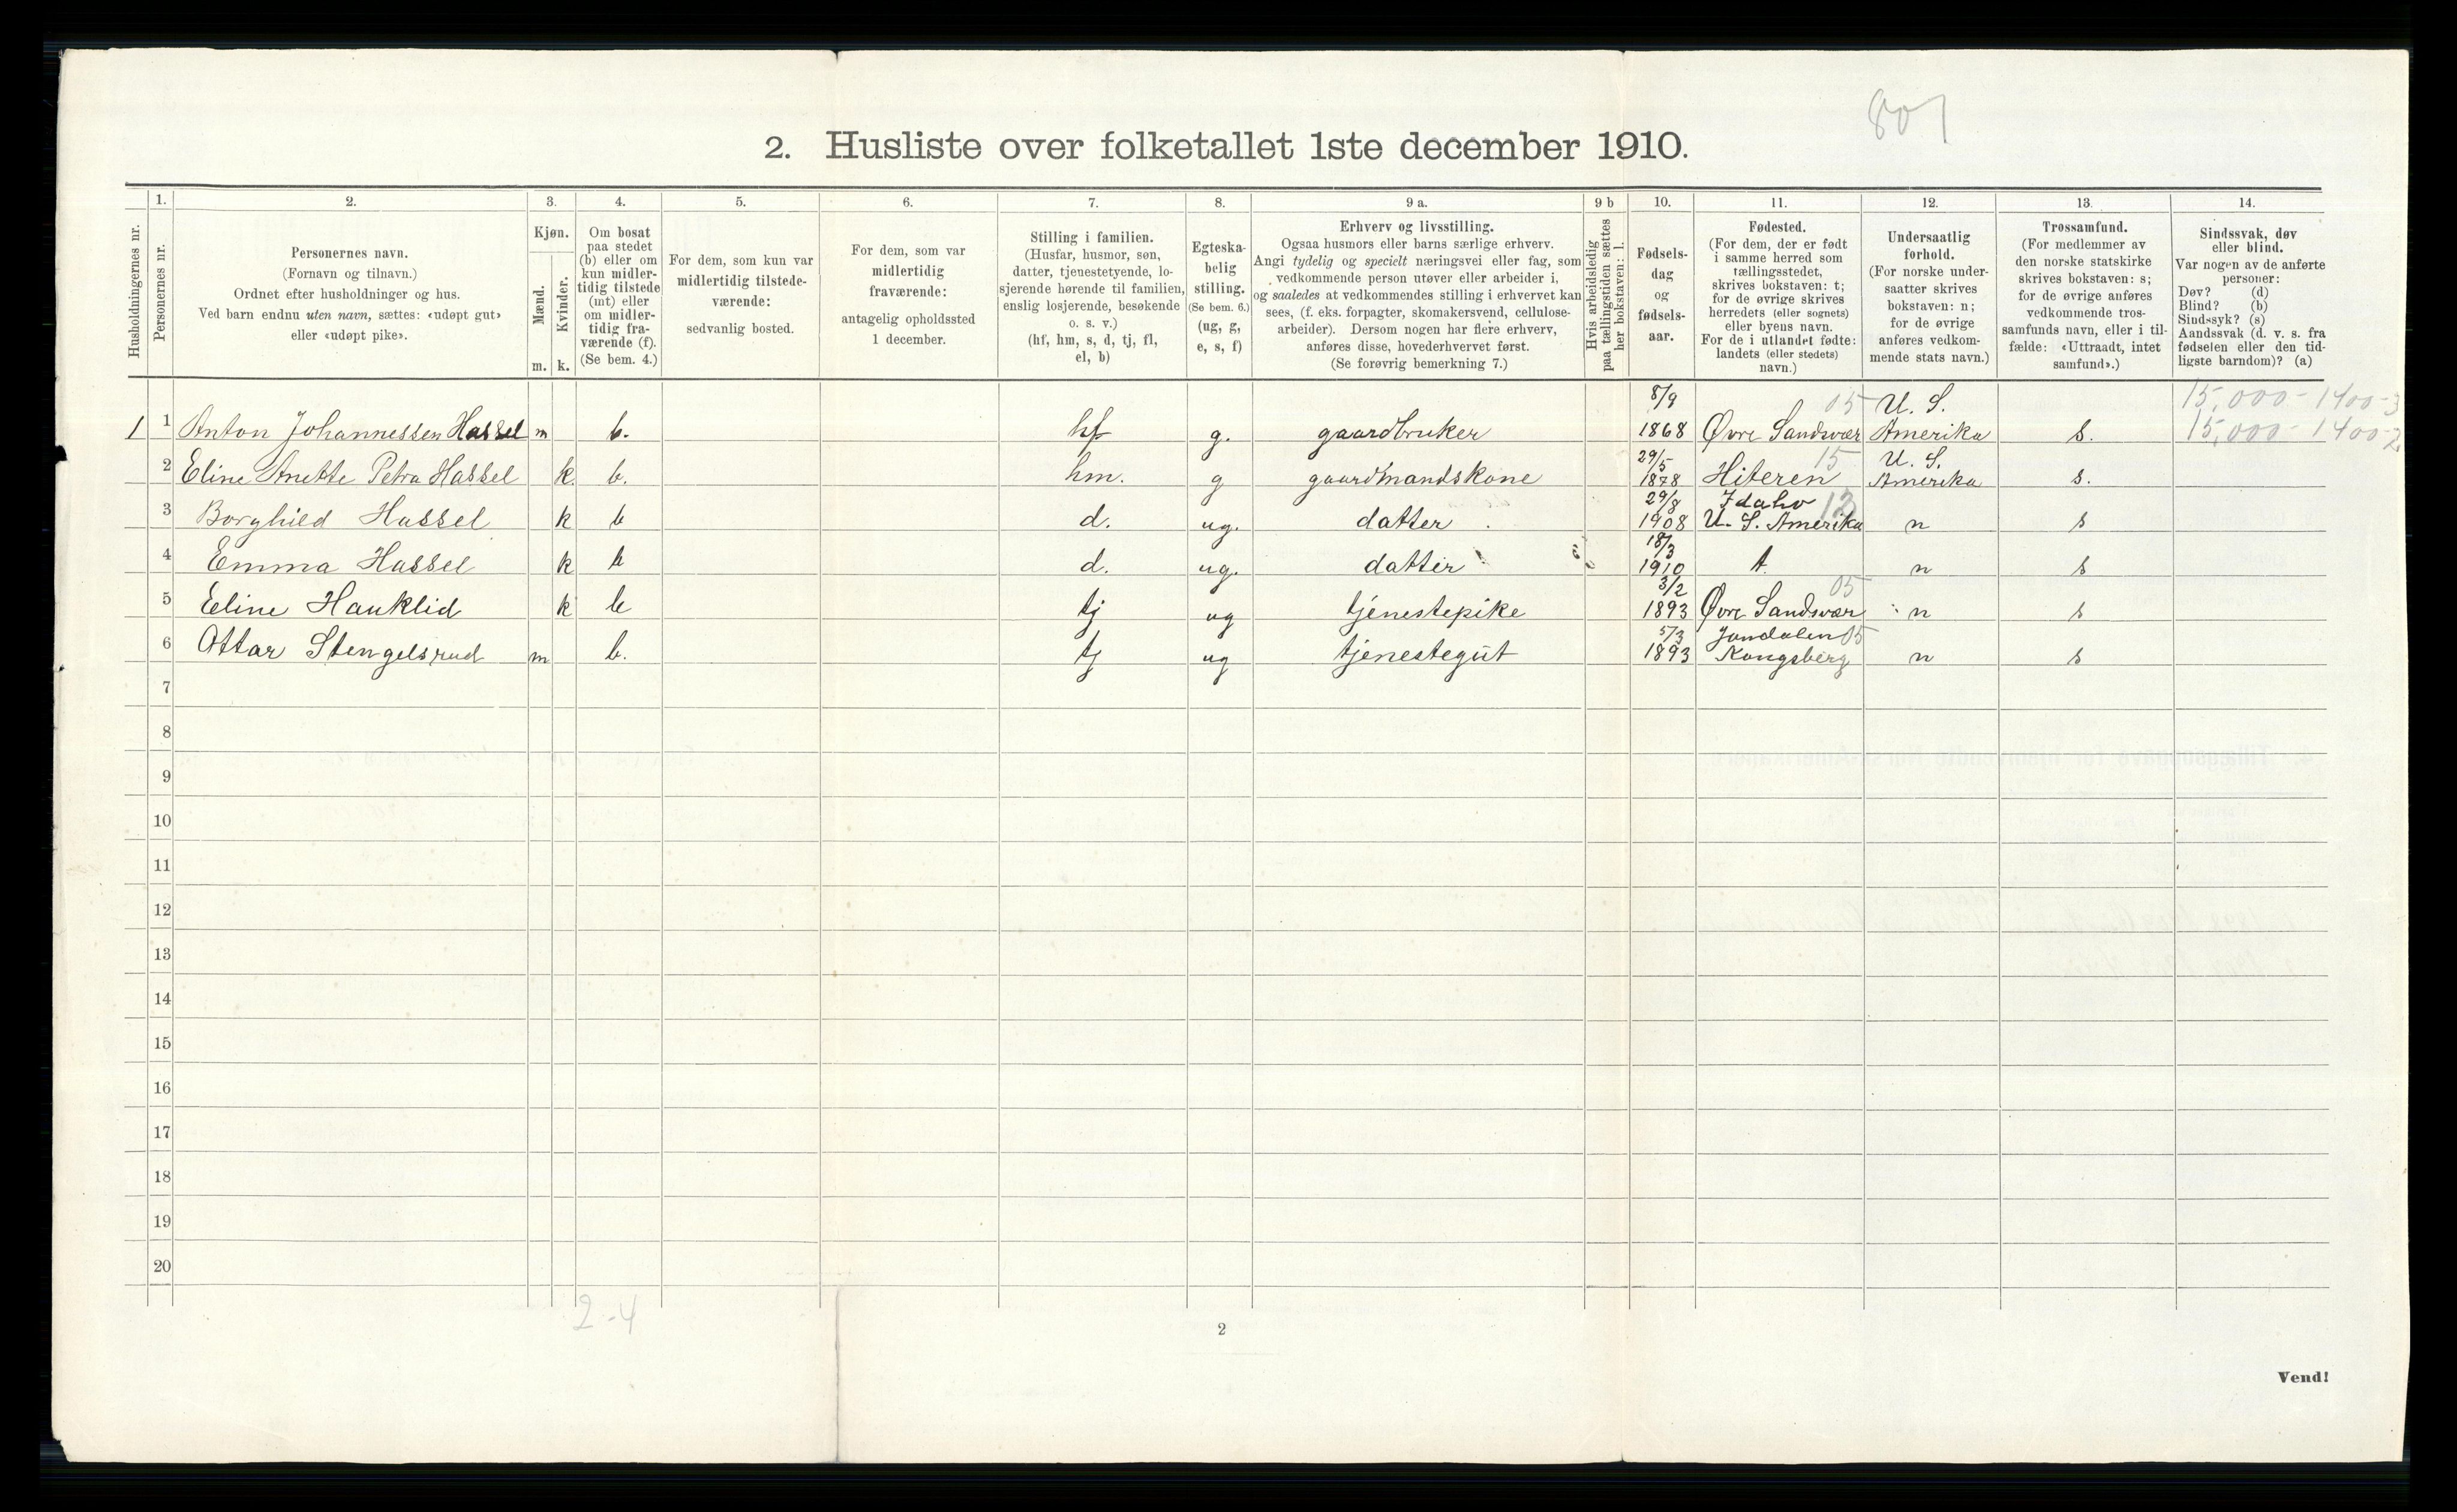 801
2. Husliste over folketallet 1ste december 1910.
Husholdningernes nr.
1.
Personernes nr.
2.
Personernes navn.
(Fornavn og tilnavn.)
Ordnet efter husholdninger og hus.
Ved barn endnu uten navn, sættes: «udøpt gut»
eller «udøpt pike».
3.
Kjøn.
Mænd.
Kvinder.
m. k.
4.
Om bosat
paa stedet
(b) eller om
kun midler-
tidig tilstede
(mt) eller
om midler-
tidig fra-
værende (f).
(Se bem. 4.)
5.
For dem, som kun var
midlertidig tilstede-
værende:
sedvanlig bosted.
6.
For dem, som var
midlertidig
fraværende:
antagelig opholdssted
1 december.
7.
Stilling i familien.
(Husfar, husmor, søn,
datter, tjenestetyende, lo-
sjerende hørende til familien,
enslig losjerende, besøkende
o. s. v.)
(hf, hm, s, d, tj, fl,
el, b)
8.
Egteska-
belig
stilling.
(Se bem. 6.)
(ug, g,
e, s, f)
9 a.
Erhverv og livsstilling.
Ogsaa husmors eller barns særlige erhverv.
Angi tydelig og specielt næringsvei eller fag, som
vedkommende person utøver eller arbeider i,
og saaledes at vedkommendes stilling i erhvervet kan
sees, (f. eks. forpagter, skomakersvend, cellulose-
arbeider). Dersom nogen har flere erhverv,
anføres disse, hovederhvervet først.
(Se forøvrig bemerkning 7.)
9 b
Hvis arbeidsledig
paa tællingstiden sættes
her bokstaven: l.
10.
Fødsels-
dag
og
fødsels-
aar.
11.
Fødested.
(For dem, der er født
i samme herred som
tællingsstedet,
skrives bokstaven: t;
for de øvrige skrives
herredets (eller sognets)
eller byens navn.
For de i utlandet fødte:
landets (eller stedets)
navn.)
12.
Undersaatlig
forhold.
(For norske under-
saatter skrives
bokstaven: n;
for de øvrige
anføres vedkom-
mende stats navn.)
13.
Trossamfund.
(For medlemmer av
den norske statskirke
skrives bokstaven: s;
for de øvrige anføres
vedkommende tros-
samfunds navn, eller i til-
fælde: «Uttraadt, intet
samfund».)
14.
Sindssvak, døv
eller blind.
Var nogen av de anførte
personer:
Døv? (d)
Blind? (b)
Sindssyk? (s)
Aandssvak (d. v. s. fra
fødselen eller den tid-
ligste barndom)? (a)
8/9 05 U. S. 15,000 - 1400-3
1 1 Anton Johannessen Hassel m b. hf g. gaardbruker 1868 Øvre Sandsvær Amerika s. 15,000 - 1400-2
29/5 15 U. S.
2 Eline Anette Petra Hassel k b. hm. g gaardmandskone 1878 Hiteren Amerika s.
29/8 Idaho 12
3 Borghild Hassel k b d. ug. datter 1908 U. S. Amerika n s
18/3
4 Emma Hassel k b d. ug. datter 1910 t. n s
3/2 05
5 Eline Hauklid k b tj ug tjenestepike 1893 Øvre Sandsvær n s
5/3 Jondalen 05
6 Ottar Stengelsrud m b. tj ug tjenestegut 1893 Kongsberg n s
7
8
9
10
11
12
13
14
15
16
17
18
19
20
2-4
2
Vend!